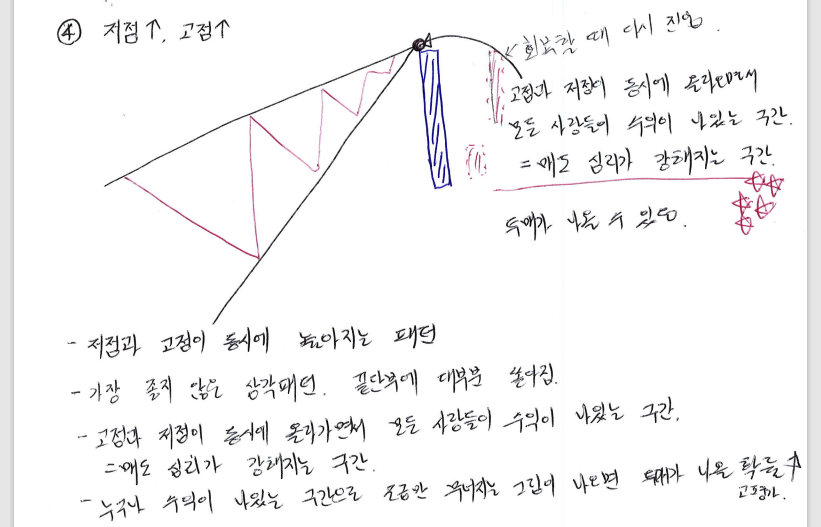 ④ 저점↑, 고점↑
← 회복할 때 다시 진입.
고점과 저점이 동시에 올라오면서
모든 사람들이 수익이 나있는 구간.
= 매도 심리가 강해지는 구간.
투매가 나올 수 있음.
- 저점과 고점이 동시에 높아지는 패턴
- 가장 좋지 않은 삼각패턴. 끝단부에 대부분 쏟아짐.
- 고점과 저점이 동시에 올라가면서 모든 사람들이 수익이 나있는 구간.
= 매도 심리가 강해지는 구간.
- 누구나 수익이 나있는 구간으로 조금만 무너지는 그림이 나오면 투매가 나올 확률↑
고평가.